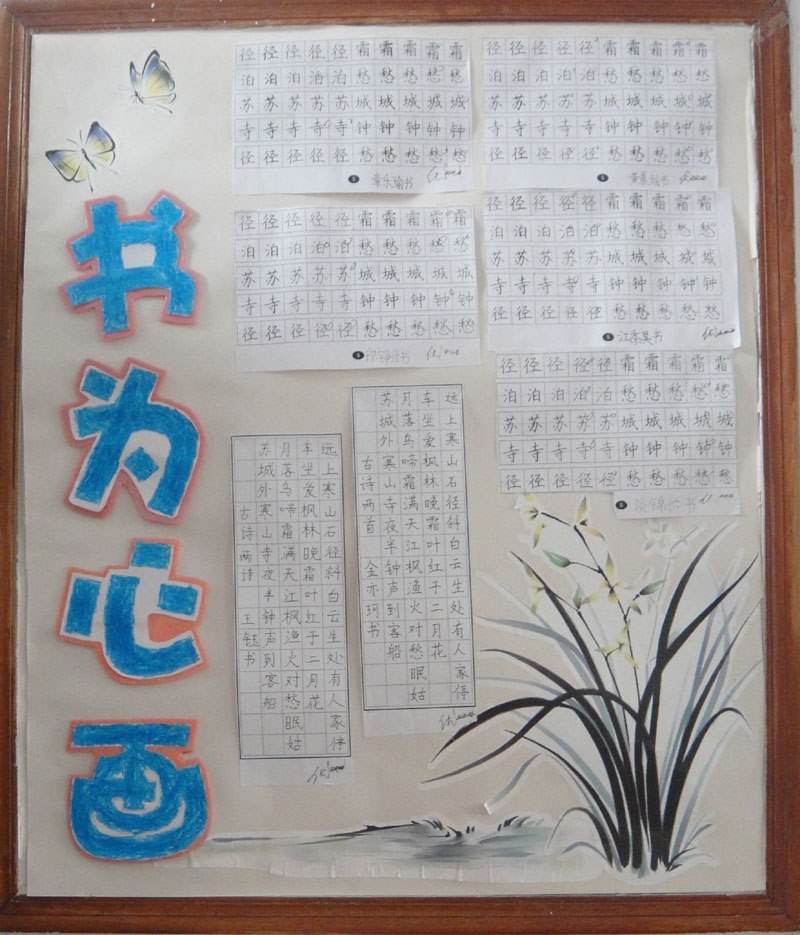 书为心画
径径径径径霜霜霜霜霜
泊泊泊泊泊愁愁愁愁愁
苏苏苏苏苏城城城城城
寺寺寺寺寺钟钟钟钟钟
径径径径径愁愁愁愁愁
章乐瑜书
径径径径径霜霜霜霜霜
泊泊泊泊泊愁愁愁愁愁
苏苏苏苏苏城城城城城
寺寺寺寺寺钟钟钟钟钟
径径径径径愁愁愁愁愁
书
径径径径径霜霜霜霜霜
泊泊泊泊泊愁愁愁愁愁
苏苏苏苏苏城城城城城
寺寺寺寺寺钟钟钟钟钟
径径径径径愁愁愁愁愁
书
径径径径径霜霜霜霜霜
泊泊泊泊泊愁愁愁愁愁
苏苏苏苏苏城城城城城
寺寺寺寺寺钟钟钟钟钟
径径径径径愁愁愁愁愁
书
径径径径径霜霜霜霜霜
泊泊泊泊泊愁愁愁愁愁
苏苏苏苏苏城城城城城
寺寺寺寺寺钟钟钟钟钟
径径径径径愁愁愁愁愁
书
远上寒山石径斜白云生处有人家停
车坐爱枫林晚霜叶红于二月花
月落乌啼霜满天江枫渔火对愁眠姑
苏城外寒山寺夜半钟声到客船
古诗两首 金亦珂书
远上寒山石径斜白云生处有人家停
车坐爱枫林晚霜叶红于二月花
月落乌啼霜满天江枫渔火对愁眠姑
苏城外寒山寺夜半钟声到客船
古诗两诗 王钰书